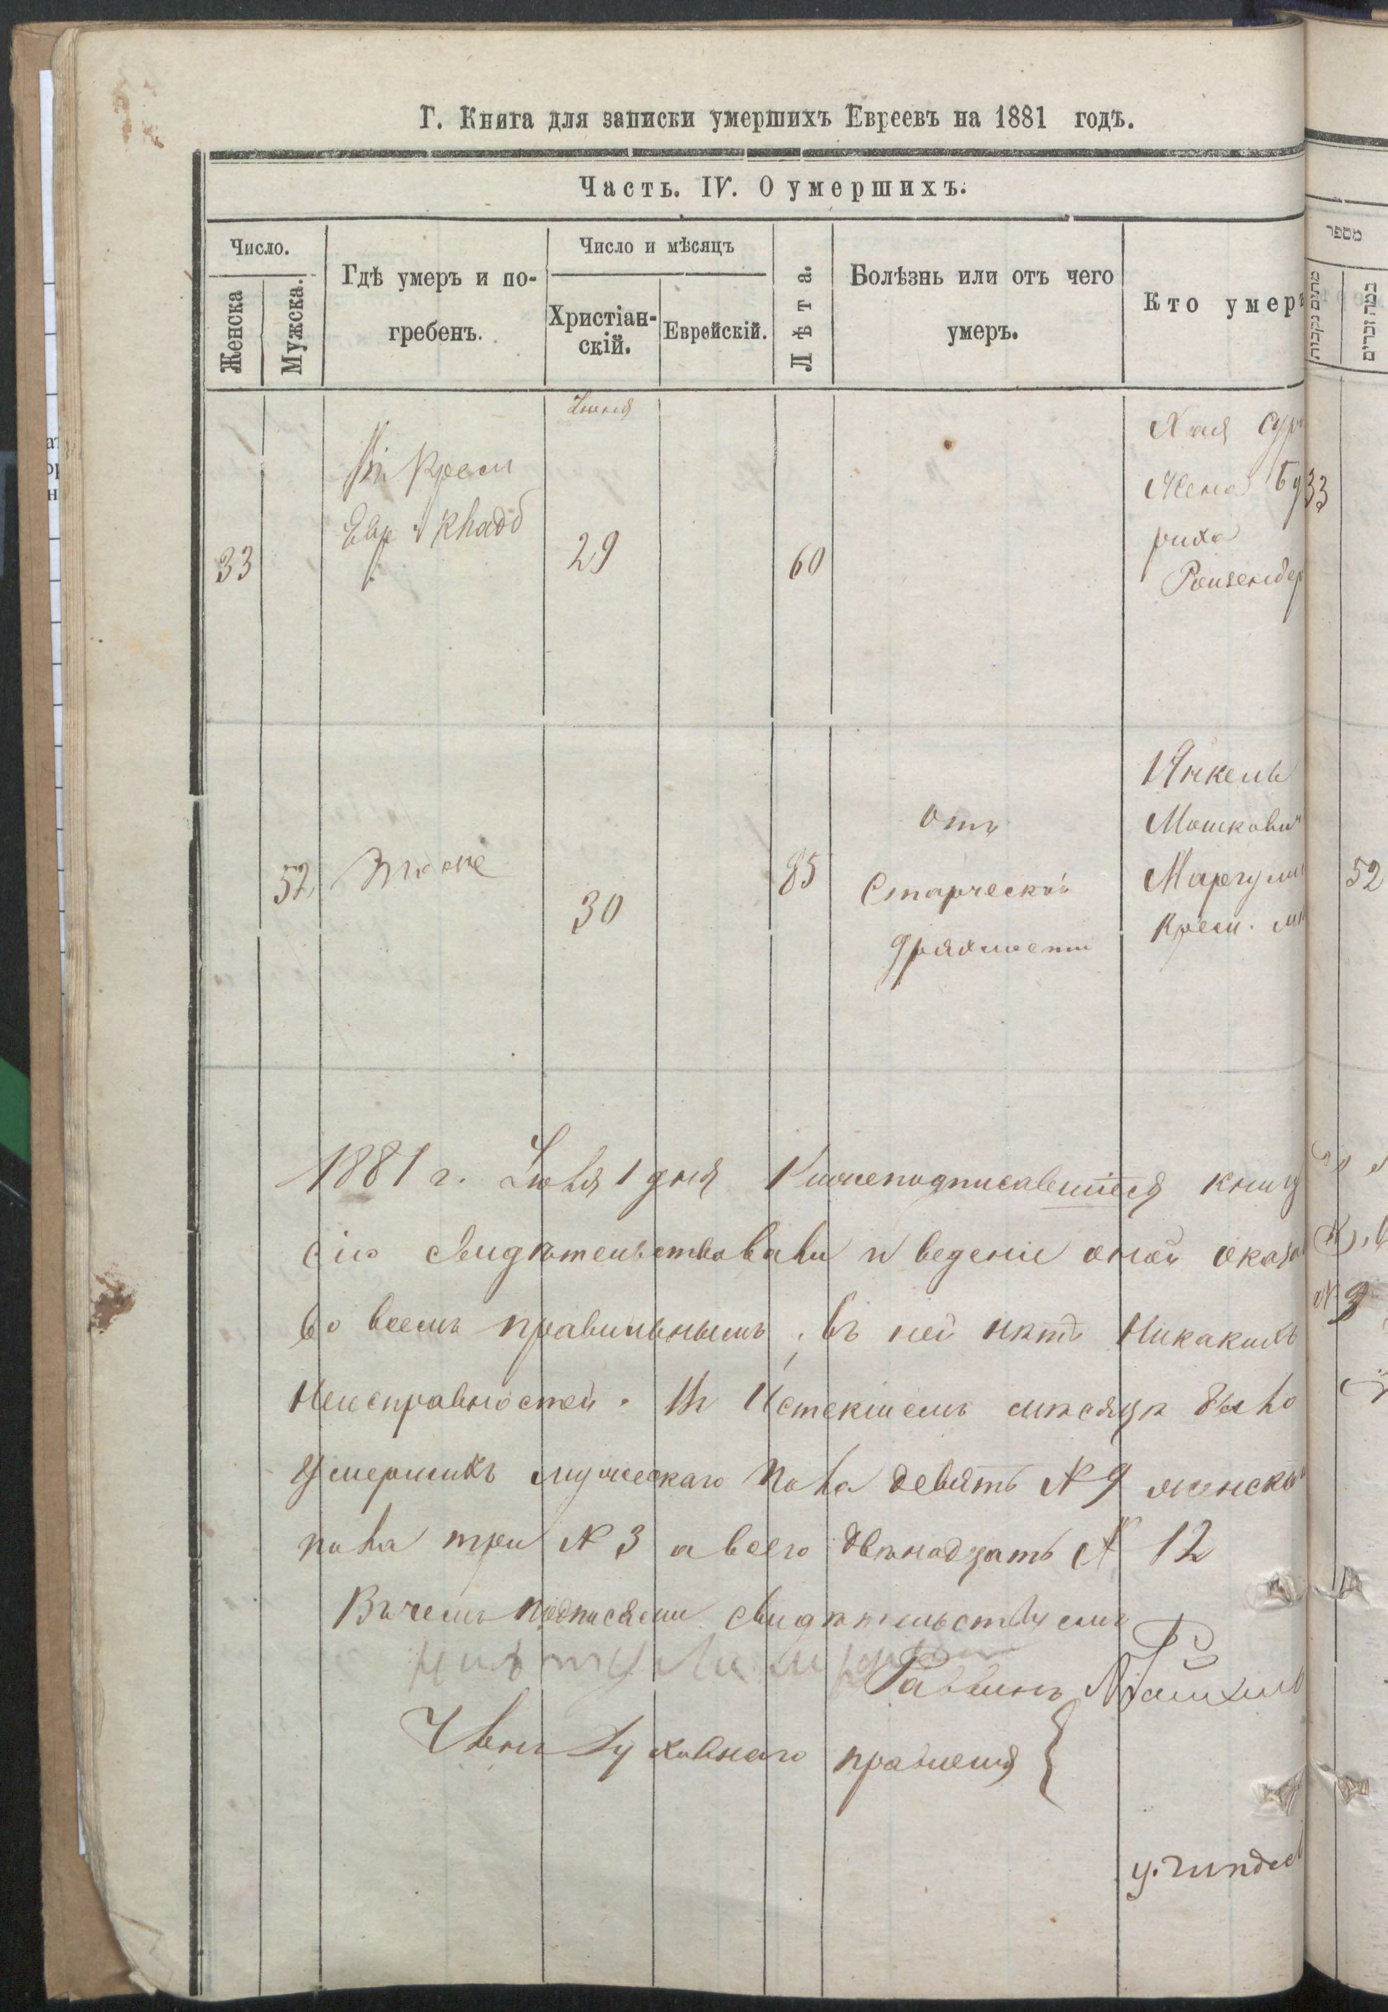 Г. Книга для записки умершихъ Евреевъ на 1881 годъ.
Часть. IV. О умершихъ.
Число.
Женска
Мужска.
Гдѣ умеръ и по-
гребенъ.
Число и мѣсяцъ
Христіан-
скій.
Еврейскій.
Лѣта.
Болѣзнь или отъ чего
умеръ.
Кто умеръ
מספר
מתים נקבות
כמה זכרים
33
Въ Крем
Евр кладб
Іюня
29
60
Хая Сур
Жена Бу
риха
Ройзенбер
33
52
Тоже
30
85
отъ
Старческой
дряхлости
Янкель
Мошкови
Маргули
Крем.
52
1881 г. Іюля 1 дня Нижеподписавшіеся книгу
сію свидѣтельствовали и веденіе оной оказа
во всемъ правильнымъ, въ ней нѣтъ никакихъ
неисправностей. Въ истекшемъ мѣсяцѣ было
умершихъ мужескаго пола девять № 9 женска
пола три № 3 а всего двѣнадцать № 12
Въ чемъ подписями свидѣтельствуемъ
Раввинъ
Членъ Духовнаго правленія